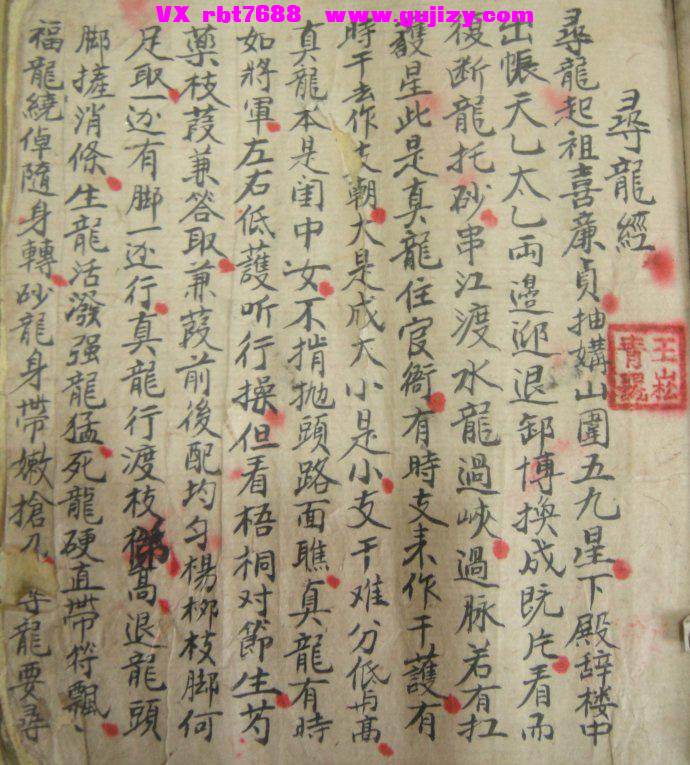 VX rbt7688 www.gujizy.com
尋龍經
尋龍起祖喜廉貞抽媾山圍五九星下殿辞楼中
出帳天乙太乙両邉迎退卸博換成既片看而
後断龍托砂串江渡水龍過峽過脉若有扛
護星此是真龍住官衙有時支来作干護有
時干去作支朝大是成大小是小支干难分低与高
真龍本是闺中女不揹抛頭路面瞧真龍有時
如將軍左右低護听行操但看梧桐对節生芍
藥枝葭兼答取兼葭前後配均匀楊柳枝脚何
足取一边有脚一边行真龍行渡枝高退龍頭
脚搓消條生龍活潑强龍猛死龍硬直帶符飄
福龍繞倬隨身轉砂龍身帶嫩搶刀尋龍要尋
王崧